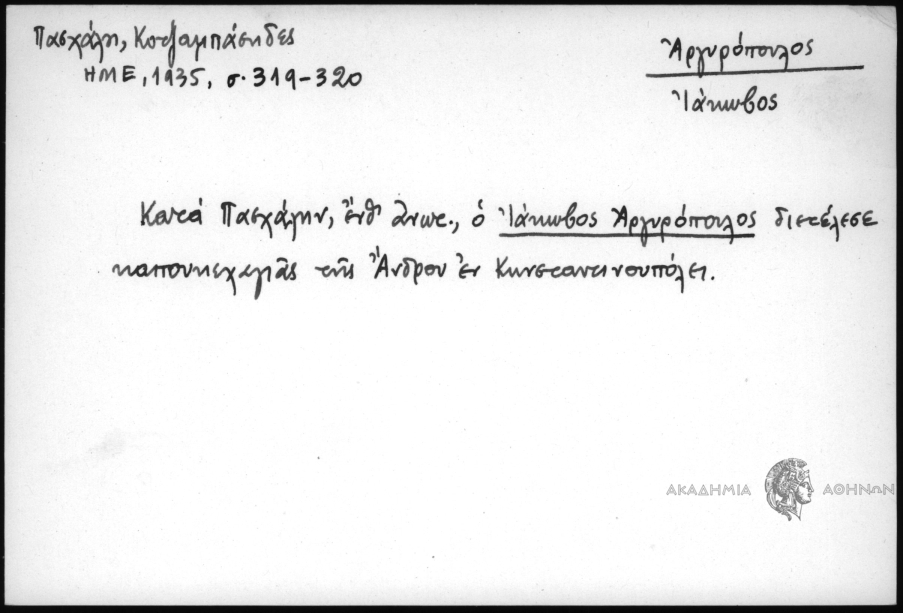 Πασχάλη, Κοτζαμπάσηδες
ΗΜΕ, 1935, σ. 319-320
Ἀργυρόπουλος
Ἰάκωβος
Κατά Πασχάλην, ἔνθ' ἀνωτ., ὁ Ἰάκωβος Ἀργυρόπουλος διετέλεσε
καπουκεχαγιᾶς τῆς Ἄνδρου ἐν Κωνσταντινουπόλει.
ΑΚΑΔΗΜΙΑ ΑΘΗΝΩΝ